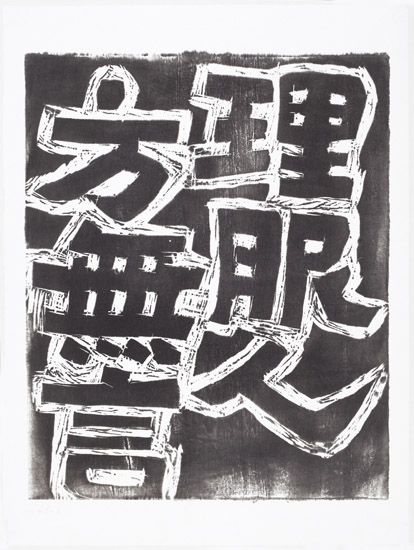 理服人
方無言